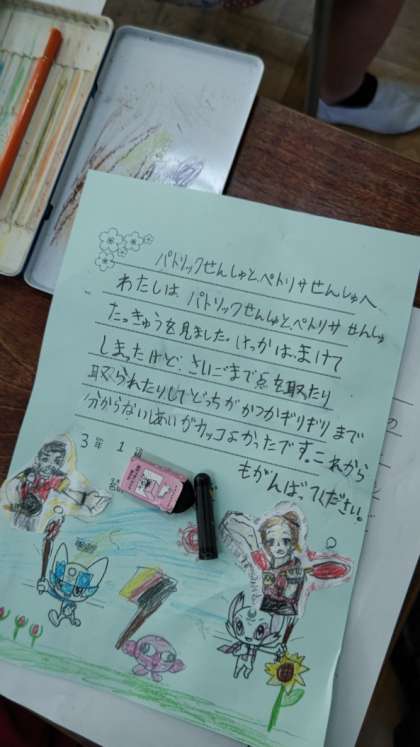 パトリックせんしゅとペトリサせんしゅへ
わたしは、パトリックせんしゅとペトリサせんしゅ
たっきゅうを見ました。けっかは、まけて
しまったけど、さいごまで点を取たり
取られたりしてどっちがかつかギリギリまで
分からないしあいがカッコよかったです。これから
もがんばってください。
3年 1